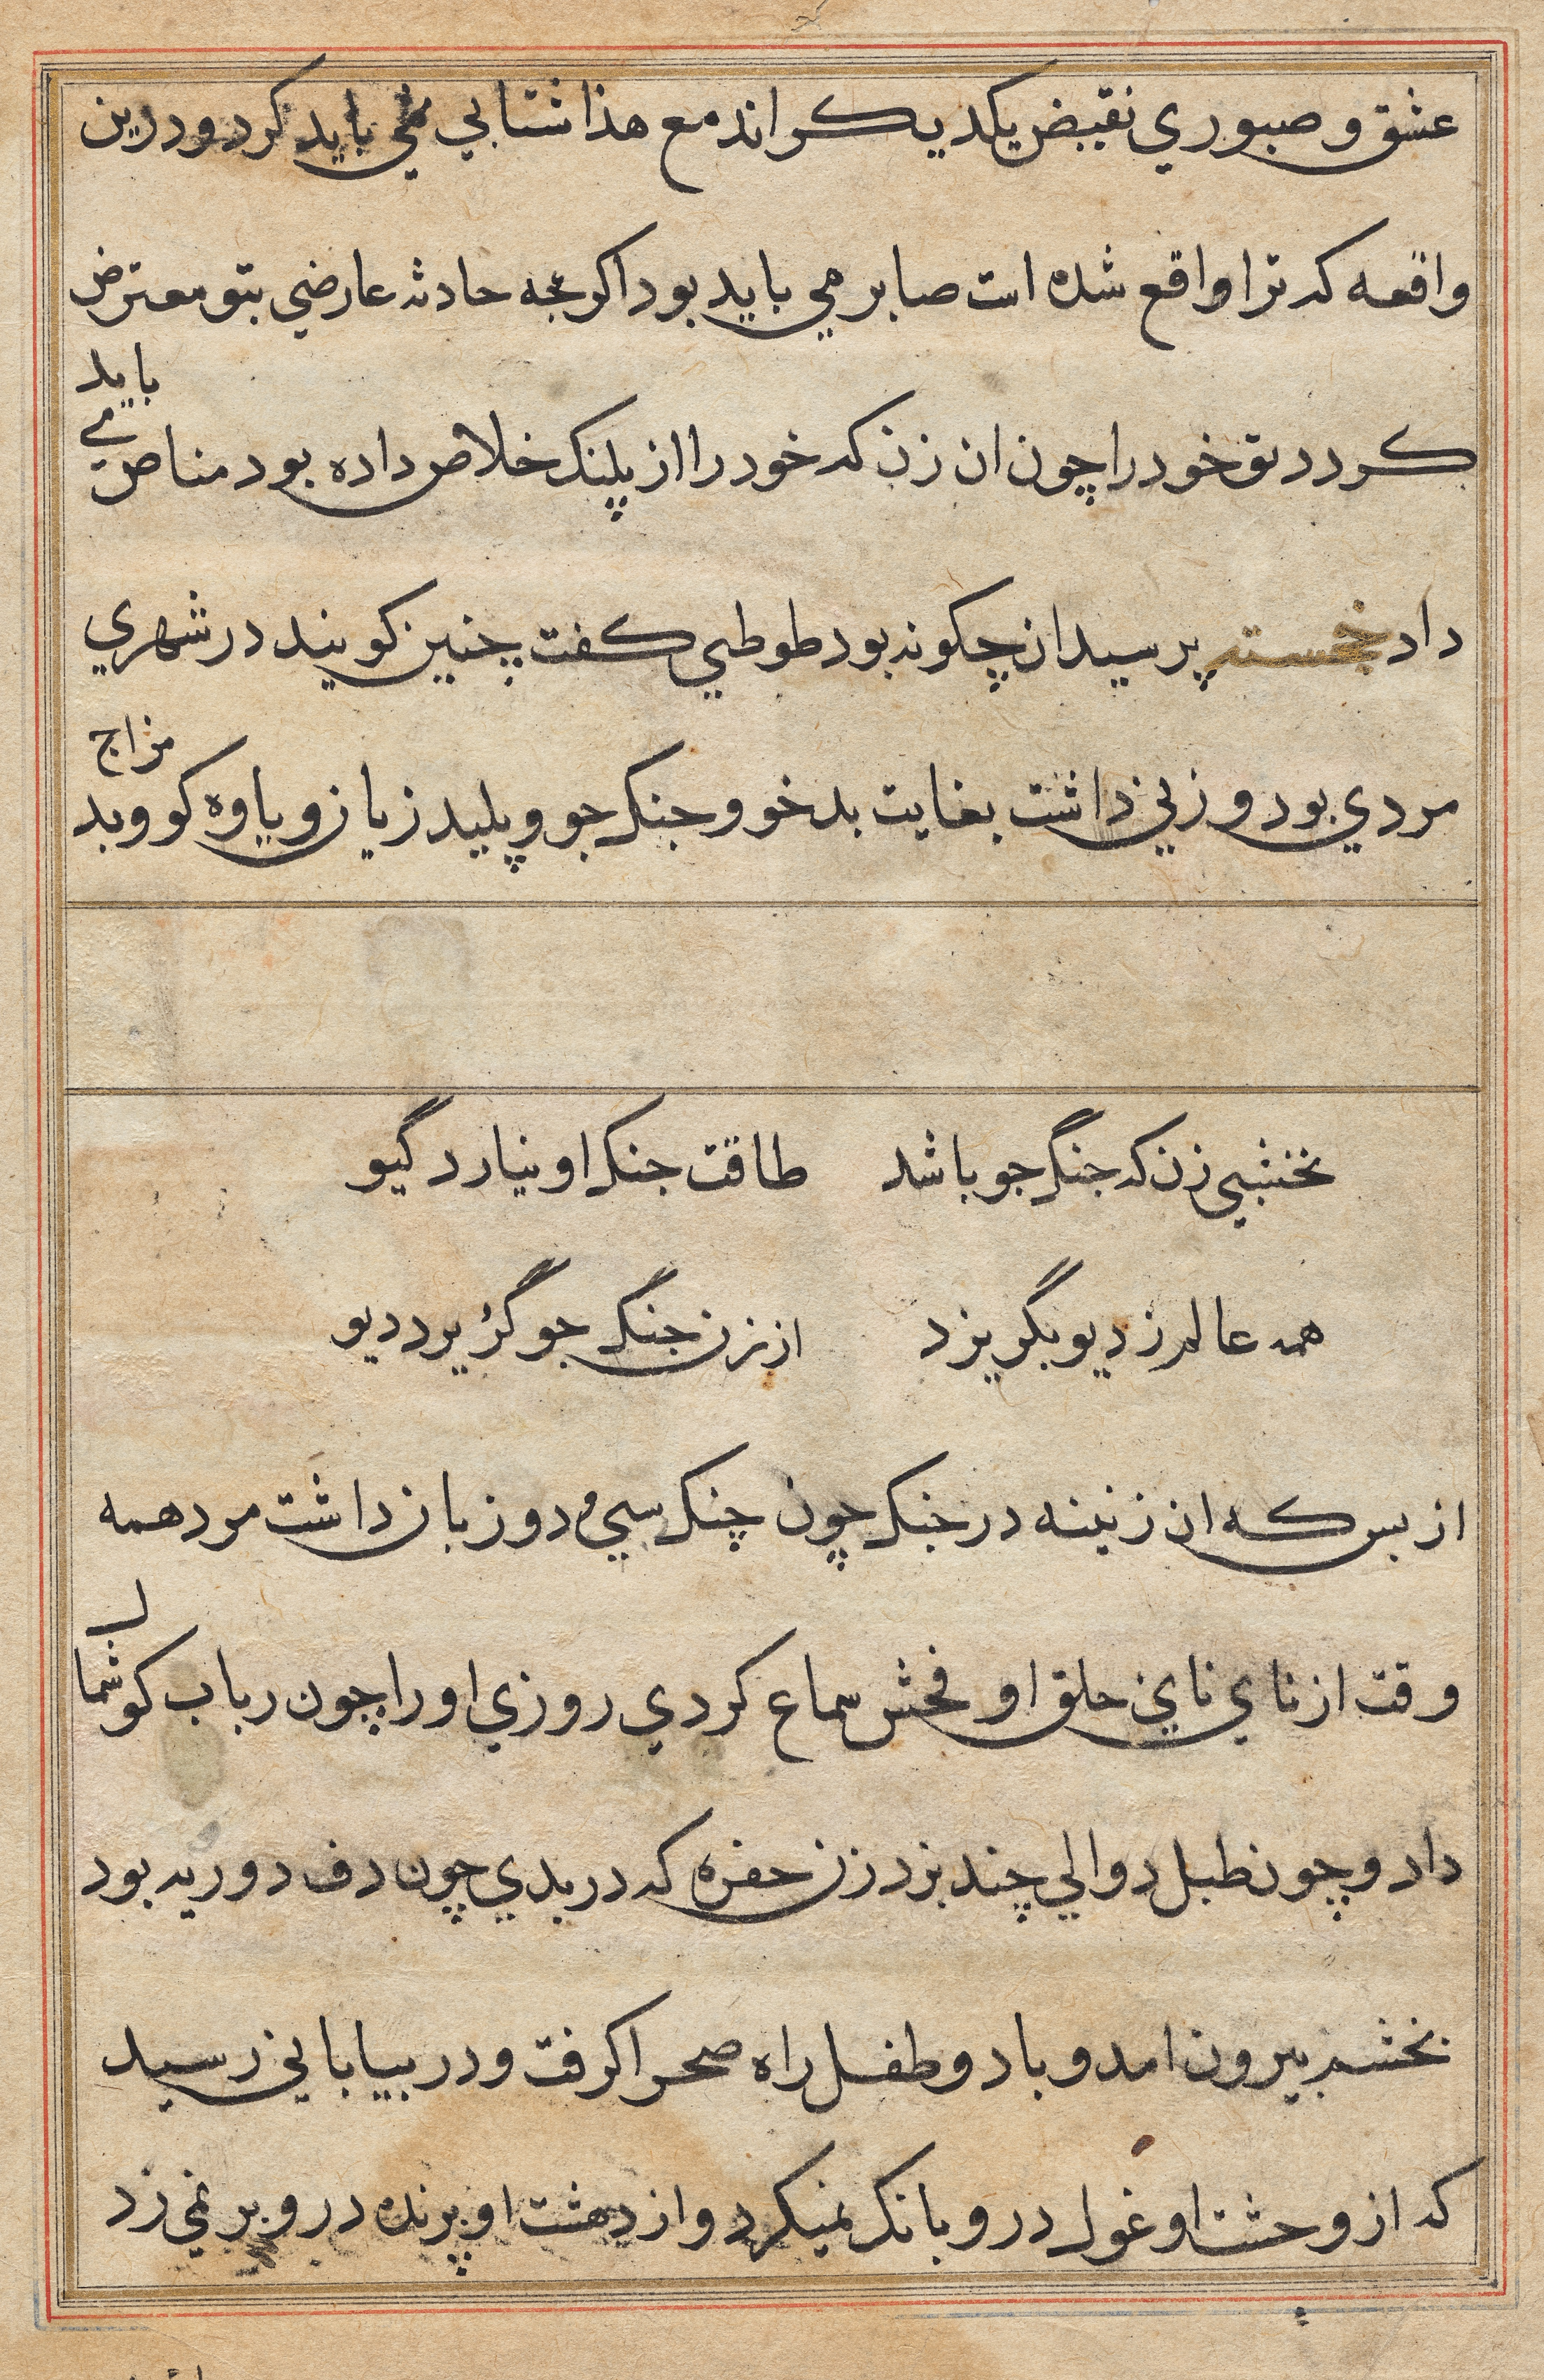 عشق و صبوري نقيض يكديكراند مع هذا شتابي مي بايد كرد و درين
واقعه كه ترا واقع شده است صابر مي بايد بود اكر عجه حادثه عارضي بتو معترض
كردد تو خود را چون ان زن كه خود را از پلنک خلاص داده بود مناص مي بايد
داد خجسته پرسيد ان چكونه بود طوطي كفت چنين كويند در شهري
مردي بود و زني داشت بغايت بد خو و جنک جو و پليد زبان و ياوه كو و بد مزاج
نخشبي زن كه جنگ جو باشد طاقت جنک او نيارد گيو
همه عالم ز ديو بگريزد از زن جنگ جو گريزد ديو
از بس كه ان زنينه در جنک چون چنک سي و دو زبان داشت مرد همه
وقت از ناي ناي حلق او فحش سماع كردي روزي او را چون رباب كوشمال
داد و چون طبل دوالي چند بزد زن حفره كه در بدي چون دف دورويه بود
بخشم بيرون امد و با دو طفل راه صحرا كرفت و در بياباني رسيد
كه از وحشت او غول در و بانک نميكرد و از دهشت او پرنده در و پر نمي زد